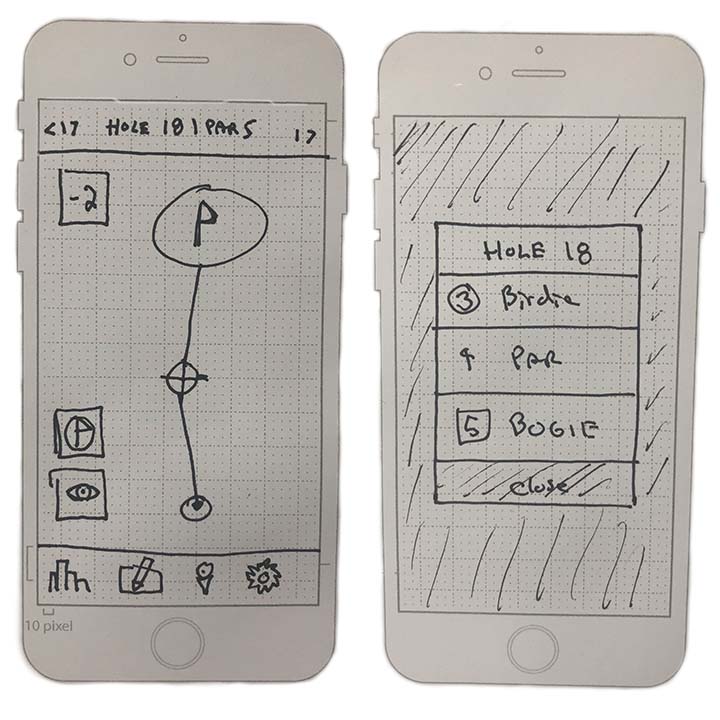 <17 HOLE 18 | PAR 5 1>
-2
P
P
10 pixel
HOLE 18
3 Birdie
4 PAR
5 BOGIE
close